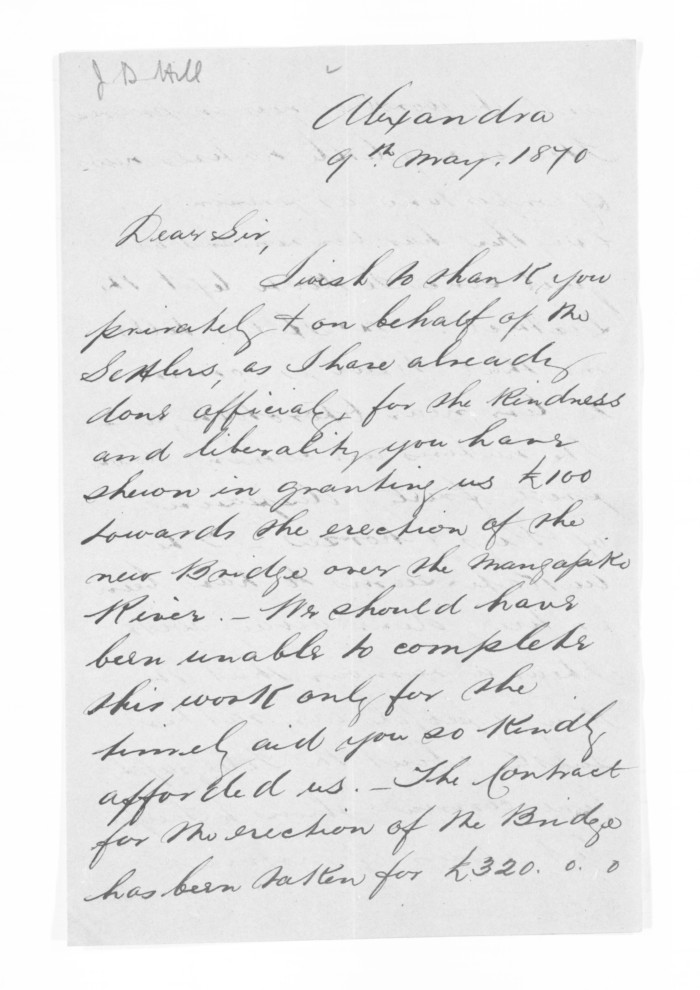 J B Hill
Alexandra
9th May. 1870
Dear Sir,
I wish to thank you
privately & on behalf of the
Settlers, as I have already
done officialy, for the kindness
and liberality you have
shewn in granting us £100
towards the erection of the
new Bridge over the Mangapiko
River. – We should have
been unable to complete
this work only for the
timely aid you so kindly
afforded us. – The Contract
for the erection of the Bridge
has been taken for £320. 0. 0